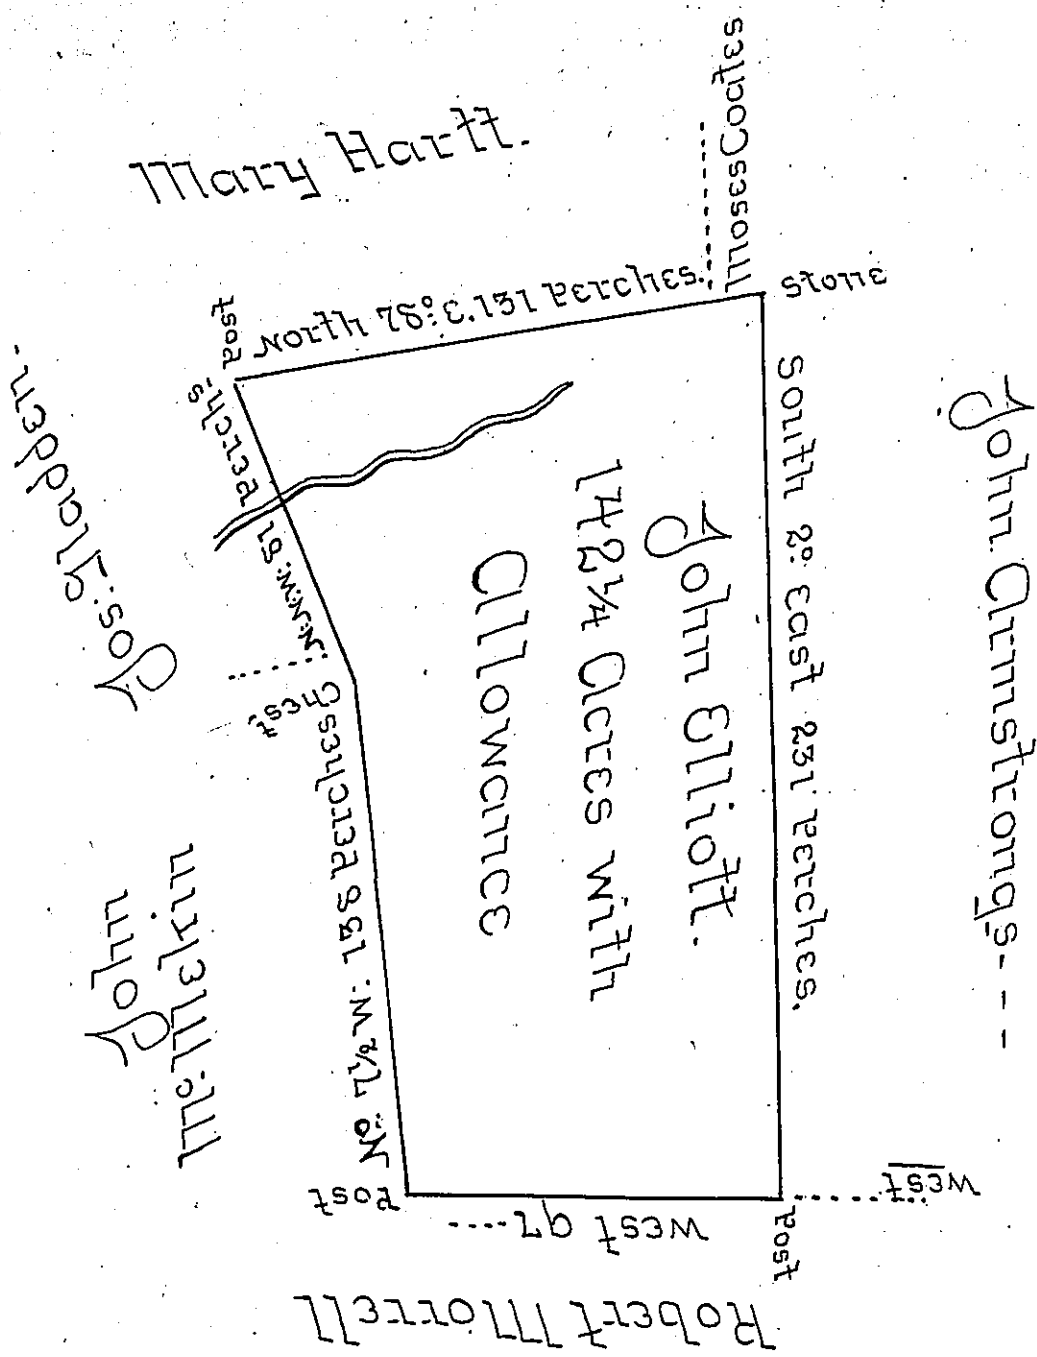 Mary Hartt.
Moses Coates
North 78°: E. 131 Perches.
Stone
Post
South 2° East 231 Perches.
John Armstrongs - - -
John Elliott.
142¼ Acres with
Allowance
N:N:W: 81 Perchs
Jos: Gladden
Chest
N° 7½ W: 138 Perches
John
McMeckin
Post
West 97
Post
West
Robert Morrell